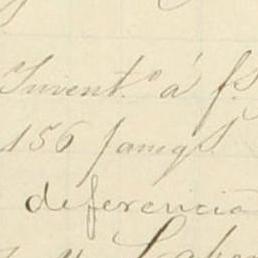 Invent.º á f.s
156 fanegs.
diferencia